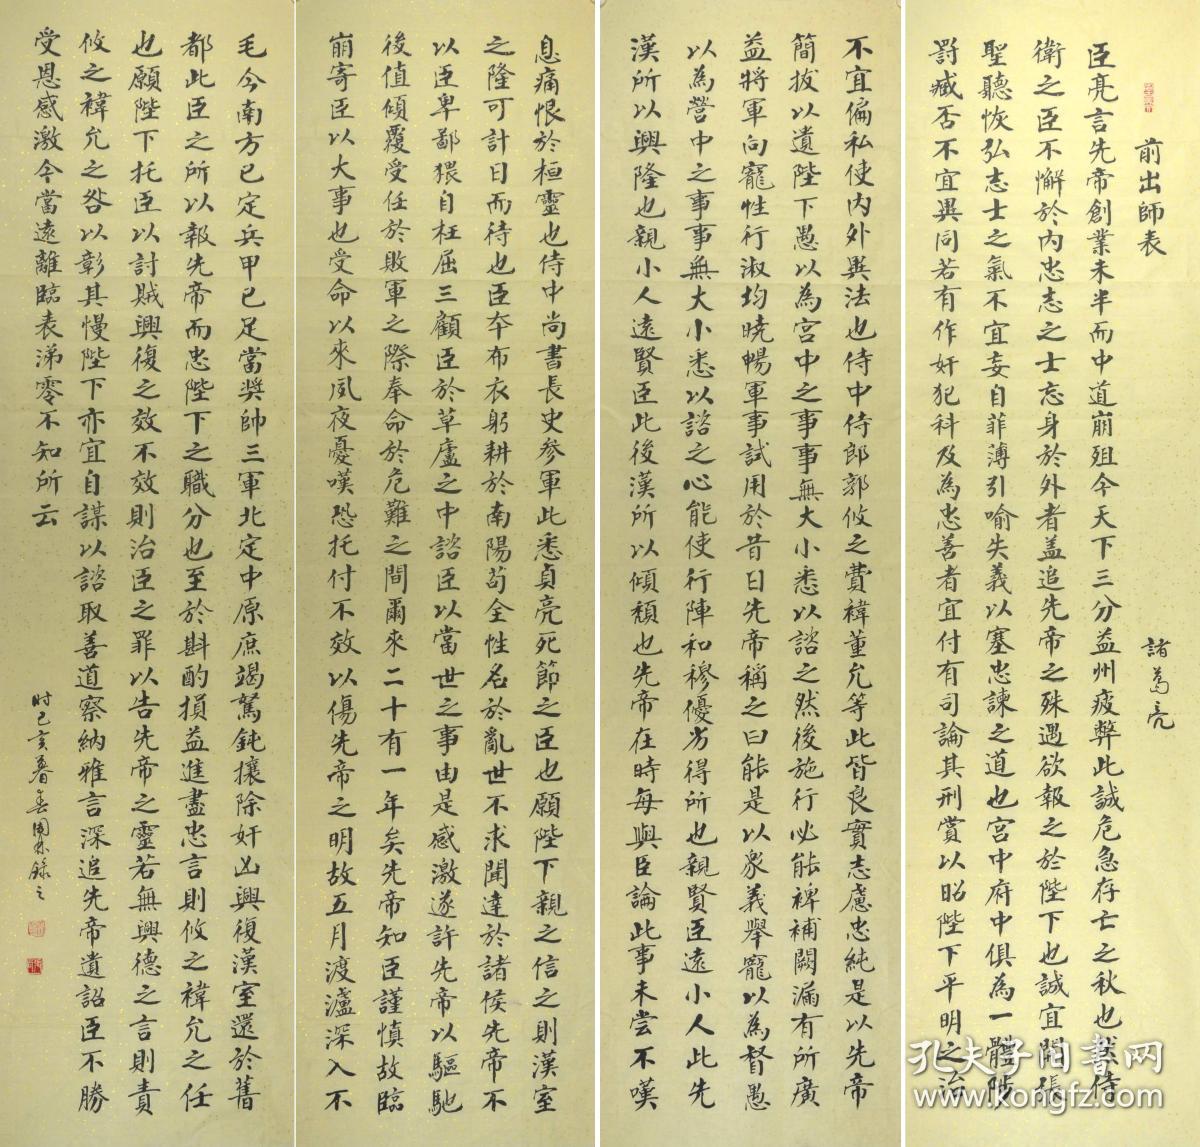 前出師表
諸葛亮
臣亮言先帝創業未半而中道崩殂今天下三分益州疲弊此誠危急存亡之秋也然侍
衛之臣不懈於內忠志之士忘身於外者蓋追先帝之殊遇欲報之於陛下也誠宜開張
聖聽恢弘志士之氣不宜妄自菲薄引喻失義以塞忠諫之道也宮中府中俱為一體陟
罰臧否不宜異同若有作奸犯科及為忠善者宜付有司論其刑賞以昭陛下平明之治
不宜偏私使內外異法也侍中侍郎郭攸之費禕董允等此皆良實志慮忠純是以先帝
簡拔以遺陛下愚以為宮中之事事無大小悉以諮之然後施行必能裨補闕漏有所廣
益將軍向寵性行淑均曉暢軍事試用於昔日先帝稱之曰能是以眾義舉寵以為督愚
以為營中之事事無大小悉以諮之必能使行陣和穆優劣得所也親賢臣遠小人此先
漢所以興隆也親小人遠賢臣此後漢所以傾頹也先帝在時每與臣論此事未嘗不嘆
息痛恨於桓靈也侍中尚書長史參軍此悉貞亮死節之臣也願陛下親之信之則漢室
之隆可計日而待也臣本布衣躬耕於南陽苟全性名於亂世不求聞達於諸侯先帝不
以臣卑鄙猥自枉屈三顧臣於草廬之中諮臣以當世之事由是感激遂許先帝以驅馳
後值傾覆受任於敗軍之際奉命於危難之間爾來二十有一年矣先帝知臣謹慎故臨
崩寄臣以大事也受命以來夙夜憂嘆恐托付不效以傷先帝之明故五月渡瀘深入不
毛今南方已定兵甲已足當獎帥三軍北定中原庶竭駑鈍攘除奸凶興復漢室還於舊
都此臣之所以報先帝而忠陛下之職分也至於斟酌損益進盡忠言則攸之禕允之任
也願陛下托臣以討賊興復之效不效則治臣之罪以告先帝之靈若無興德之言則責
攸之禕允之咎以彰其慢陛下亦宜自謀以諮取善道察納雅言深追先帝遺詔臣不勝
受恩感激今當遠離臨表涕零不知所云
時己亥春錄之
孔夫子旧书网
www.kongfz.com